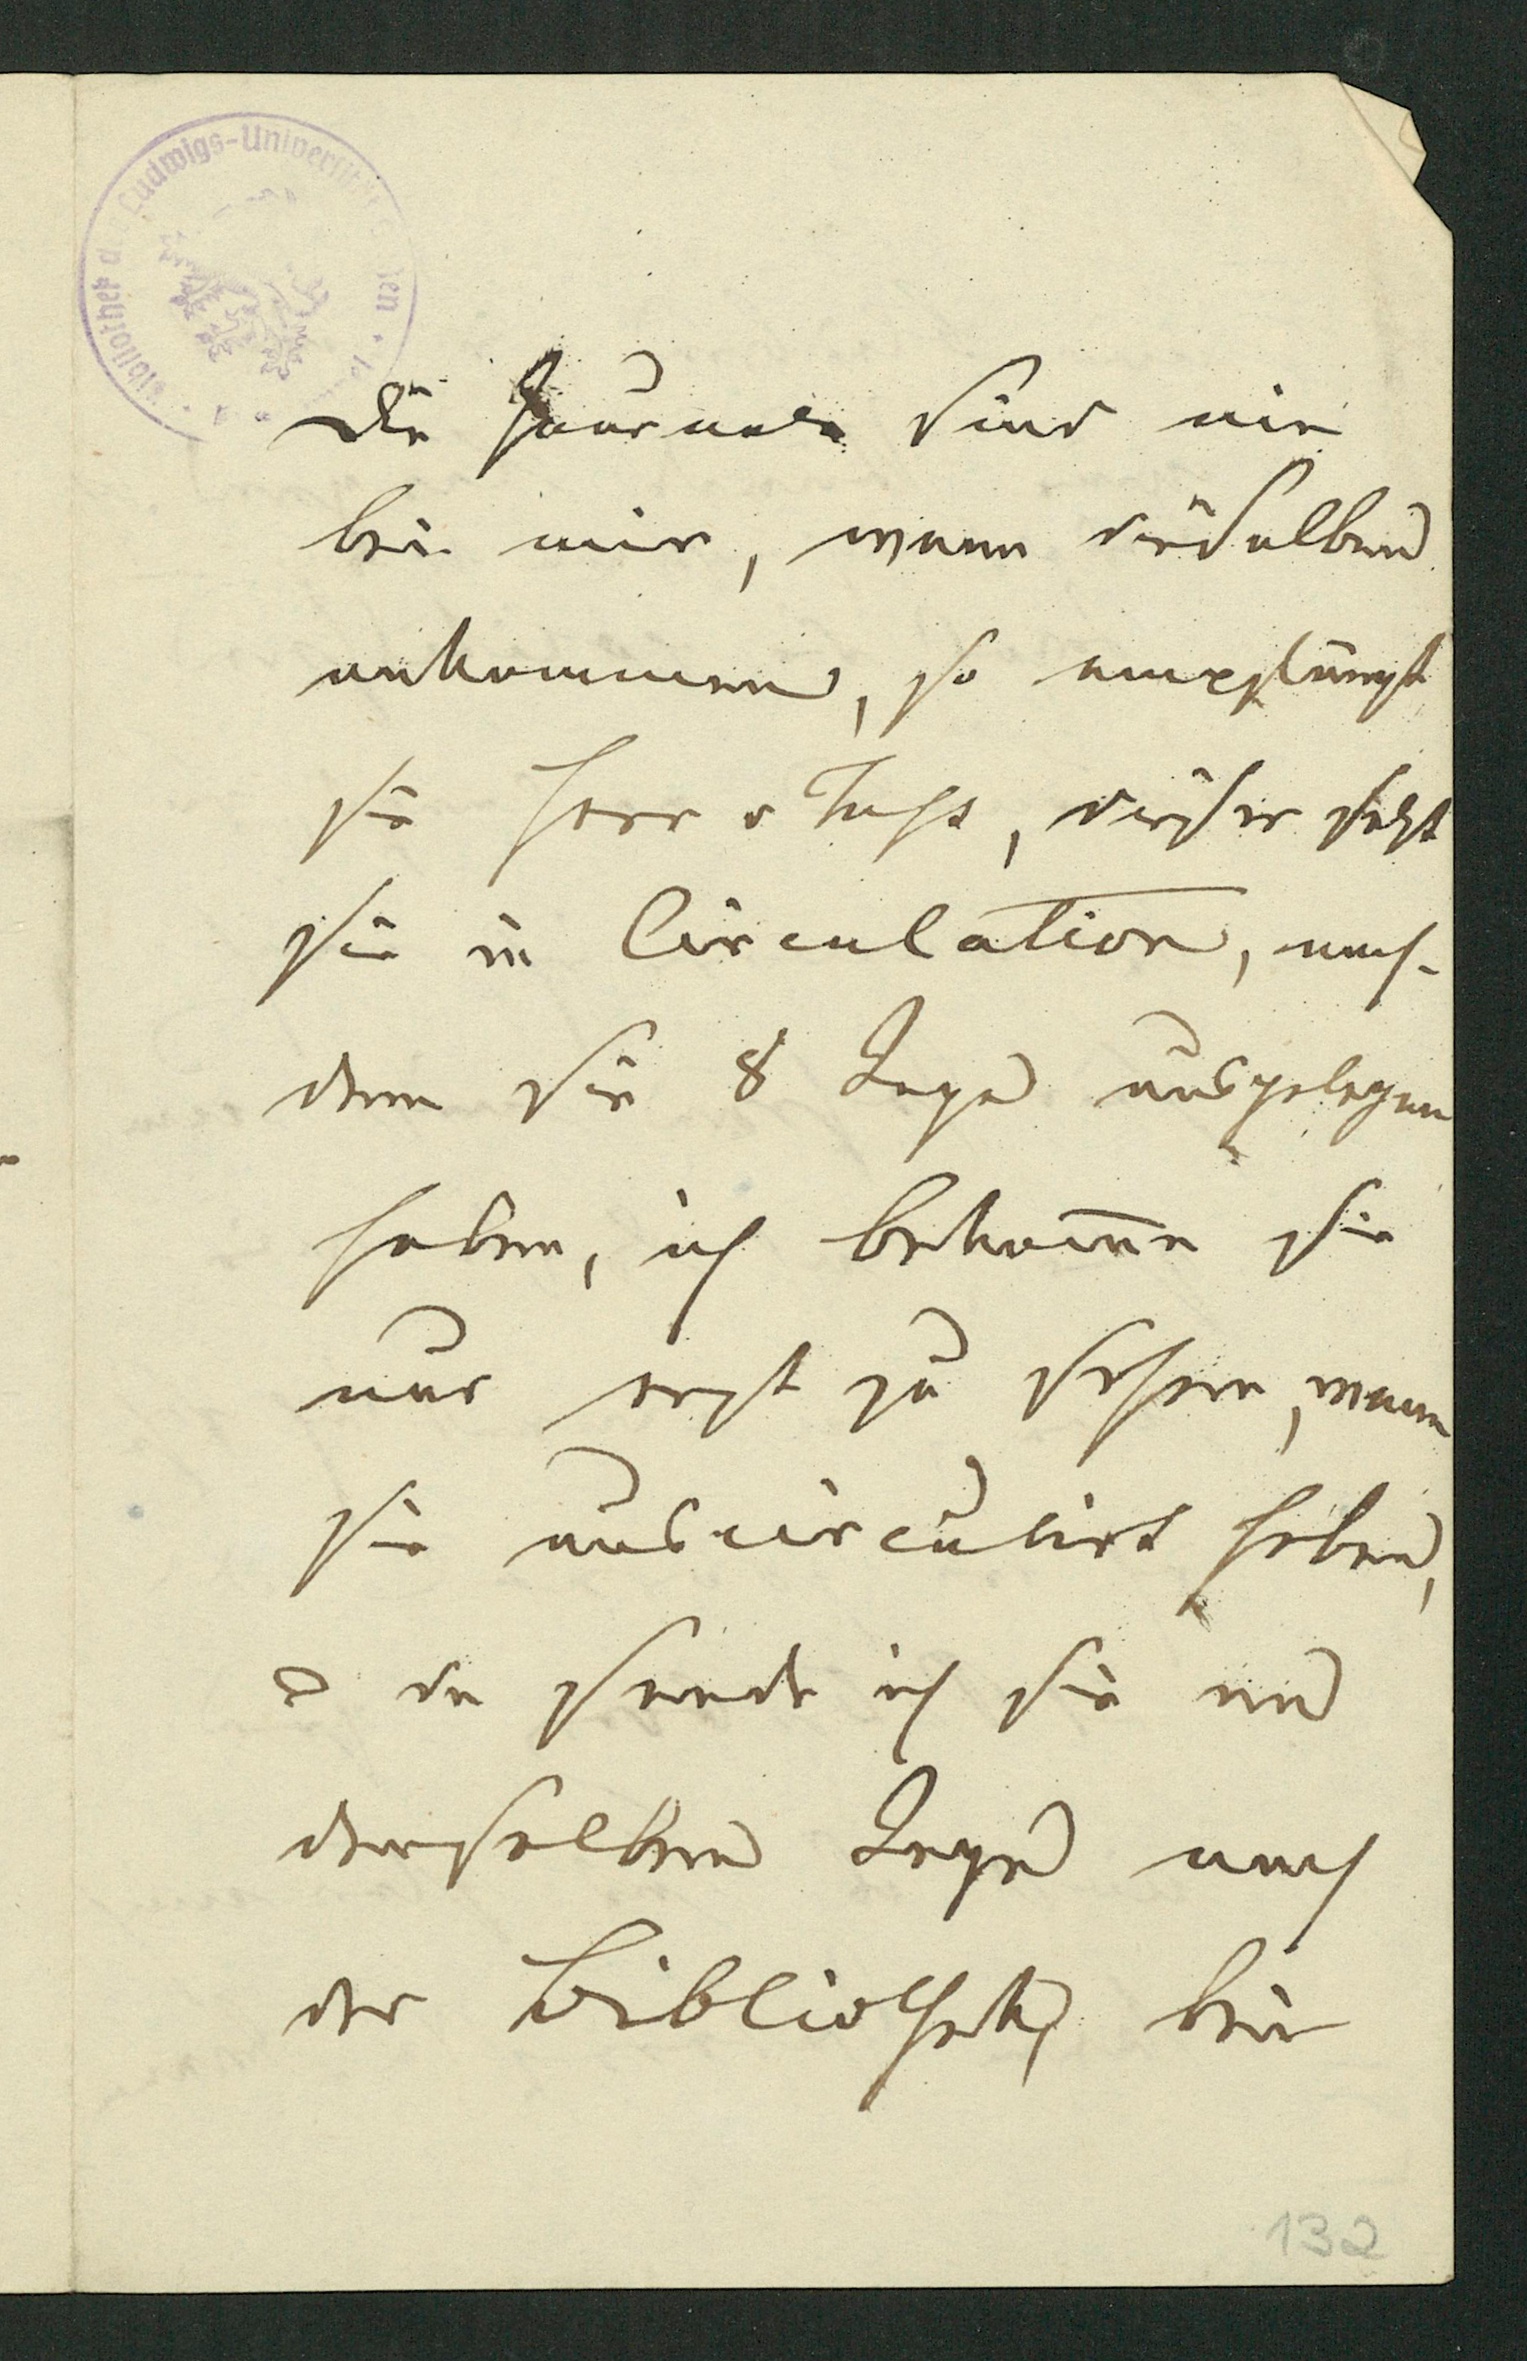 Die Journale sind nie
bei mir, wenn dieselben
ankommen, so empfängt
sie Herr v , dieser setzt
sie in Circulation, nach-
dem sie 8 Tage ausgelegen
haben, ich bekom̅e sie
nur erst zu sehen, wenn
sie auscirculirt haben,
da sende ich sie am
demselben Tage nach
der Bibliothek, bei
132